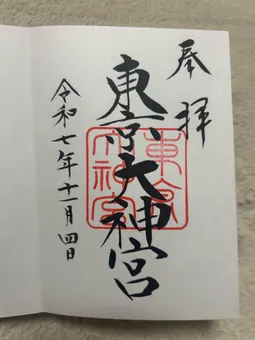 奉拝
東京大神宮
令和七年十一月四日
東京大神宮